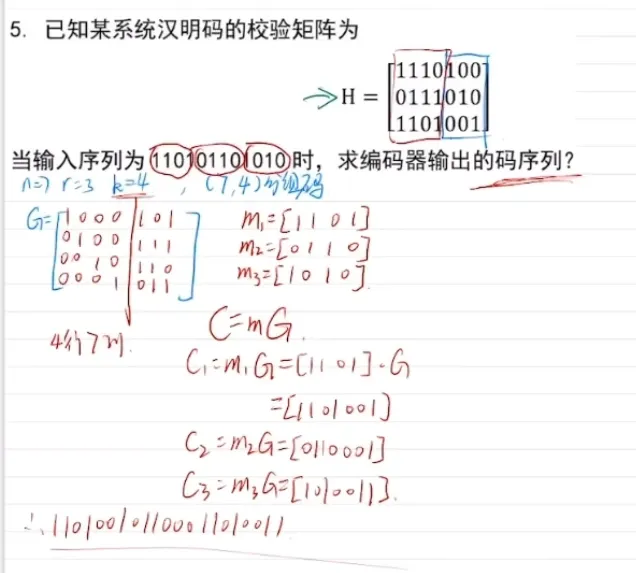 5. 已知某系统汉明码的校验矩阵为
→H = [1110100
0111010
1101001]
当输入序列为110101101010时，求编码器输出的码序列？
n=7 r=3 k=4，(7,4)分组码
G=[1 0 0 0 1 0 1
0 1 0 0 1 1 1
0 0 1 0 1 1 0
0 0 0 1 0 1 1]
m₁=[1 1 0 1]
m₂=[0 1 1 0]
m₃=[1 0 1 0]
4行7列.
C=mG.
C₁=m₁G=[1101]·G
=[1101001]
C₂=m₂G=[0110001]
C₃=m₃G=[1010011].
∴110100101100011010011